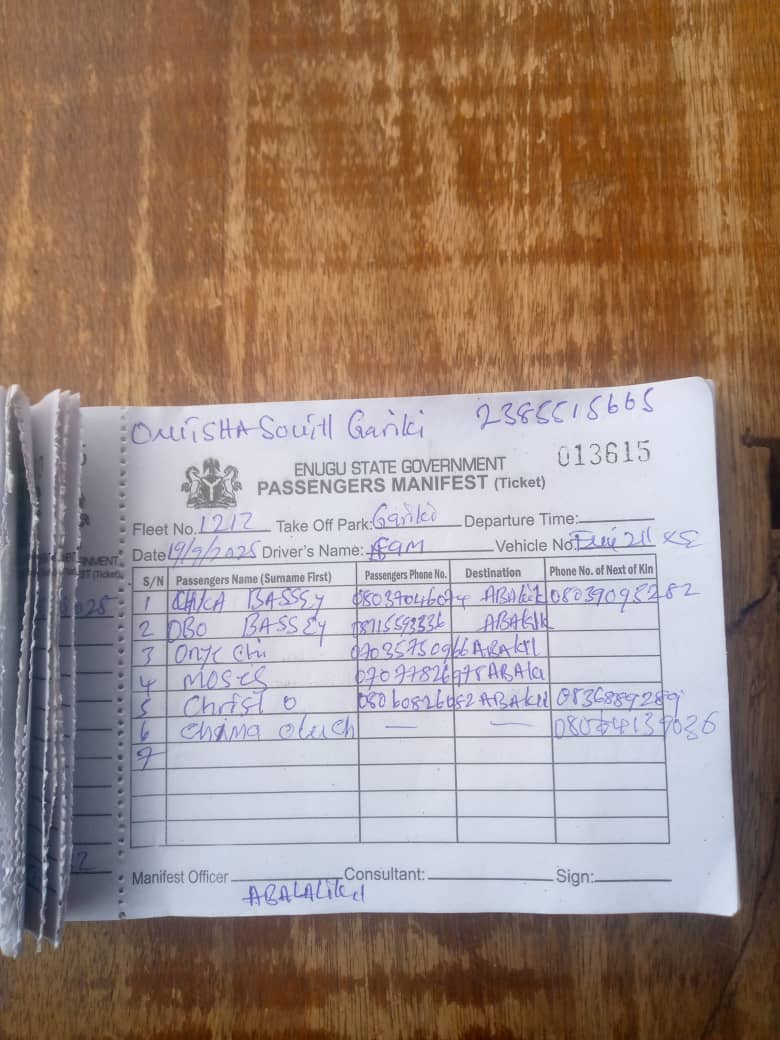 ONITSHA South Gariki 2385515665
013615
ENUGU STATE GOVERNMENT
PASSENGERS MANIFEST (Ticket)
Fleet No. 1212 Take Off Park: Gariki Departure Time:
Date 19/9/2025 Driver's Name: Vehicle No.
S/N Passengers Name (Surname First) Passengers Phone No. Destination Phone No. of Next of Kin
1 CHIKA BASSEY 08037046074 ABAKIK 08039098282
2 OBO BASSEY ABAKIK
3 Onye Chi 07035750966 ABAKIL
4 MOSES 07077826978 ABAKA
5 Christ O 08060826082 ABAKIL 0836889289
6 —  —
7
Manifest Officer Consultant: Sign:
2025